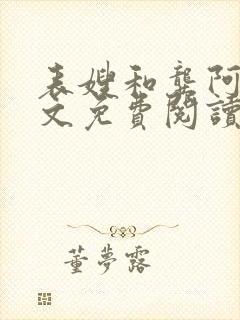 表嫂和龔阿
文免費閱讀
董夢露